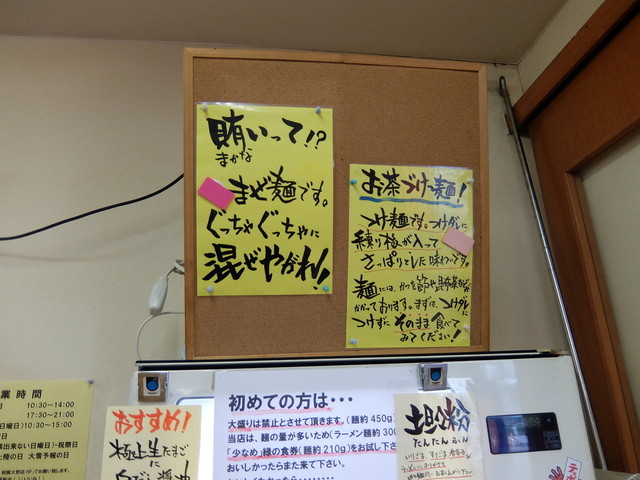 賄いって!?
まかな
まぜ麺です。
ぐっちゃぐっちゃに
混ぜやがれ!
お茶づけ麺!
つけ麺です。つけダレに
練り梅が入って
さっぱりとした味わいです。
麺には、かつを節や昆布茶などが
かかております。まずは、つけダレに
つけずにそのまま食べて
みてください!
業時間
10:30~14:00
17:30~21:00
日曜日)10:30~15:00
日曜日)・祝祭日
大雪予報の日
おすすめ!
極上生たまご
に
初めての方は・・・
大盛りは禁止とさせて頂きます。(麺約450g)
当店は、麺の量が多いため(ラーメン麺約300
「少なめ」緑の食券(麺約210g)をお試し下さ
おいしかったらまた来て下さい。
坦々粉
たんたんふん